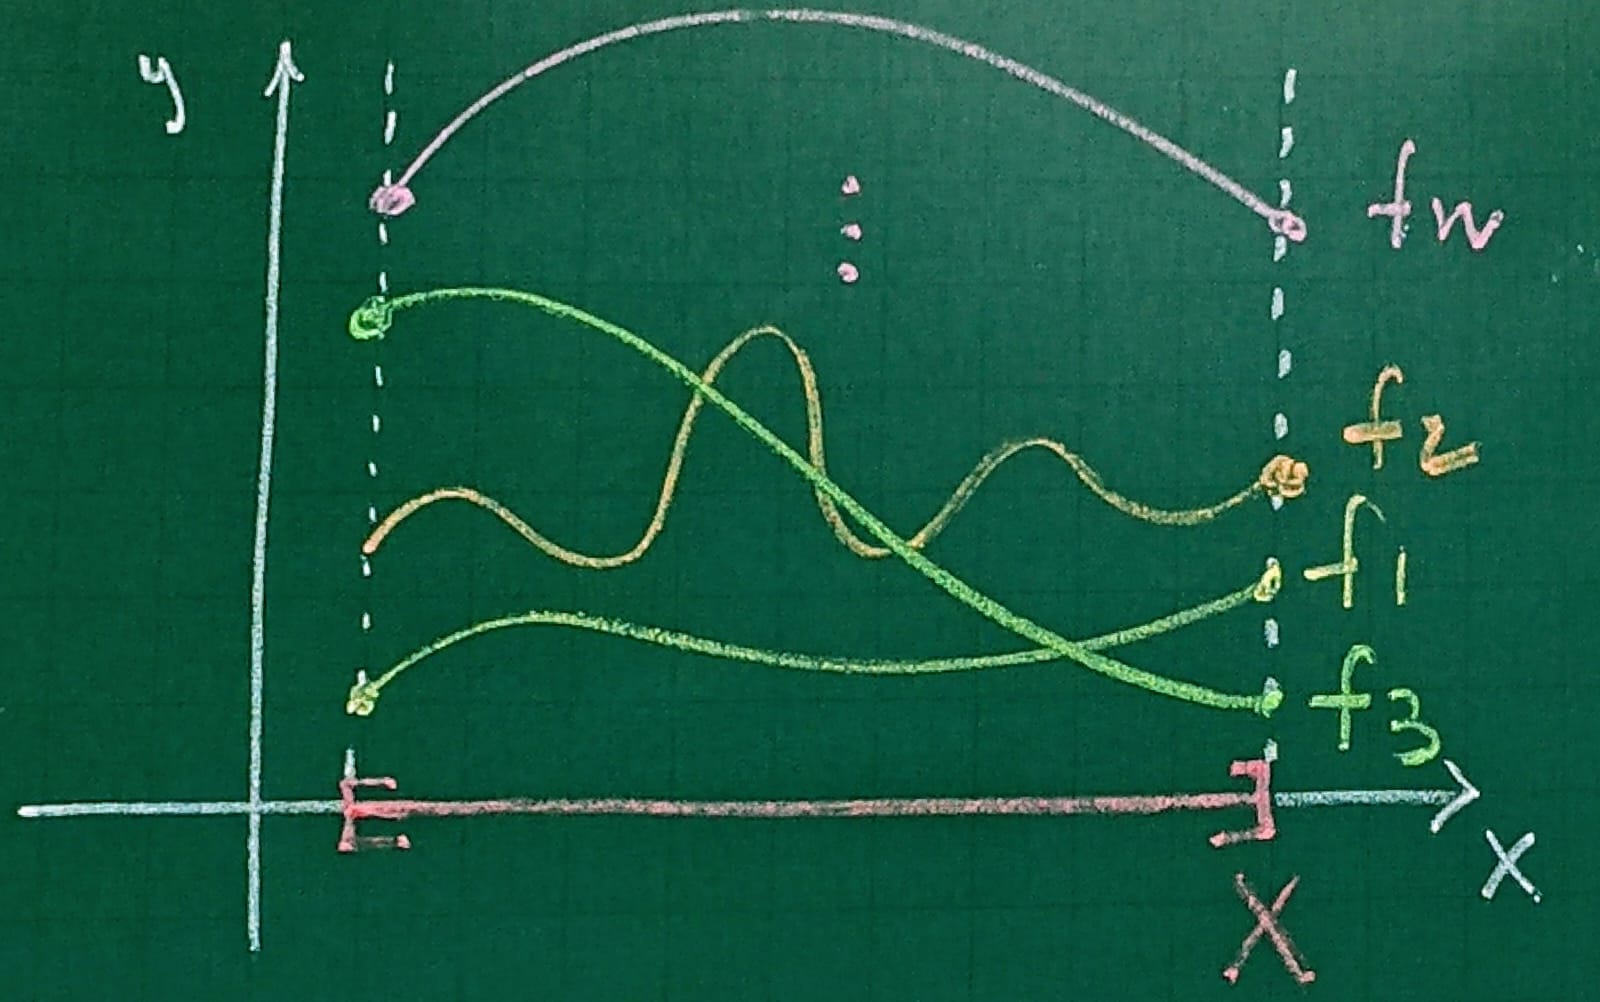 y
fn
f2
f1
f3
[ ]
x
X